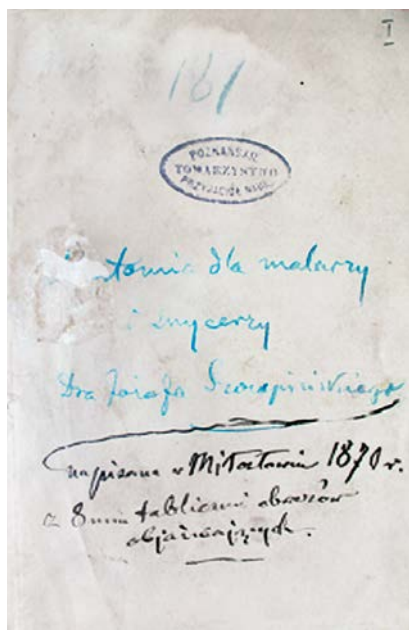 I
181
POZNAŃSK.
TOWARZYSTWO
PRZYJACIÓŁ NAUK
tomia dla malarzy
i snycerzy
Dra Józefa
napisana w Miłosławiu 1870 r.
z 8mio tablicami obrazów
objaśniających.